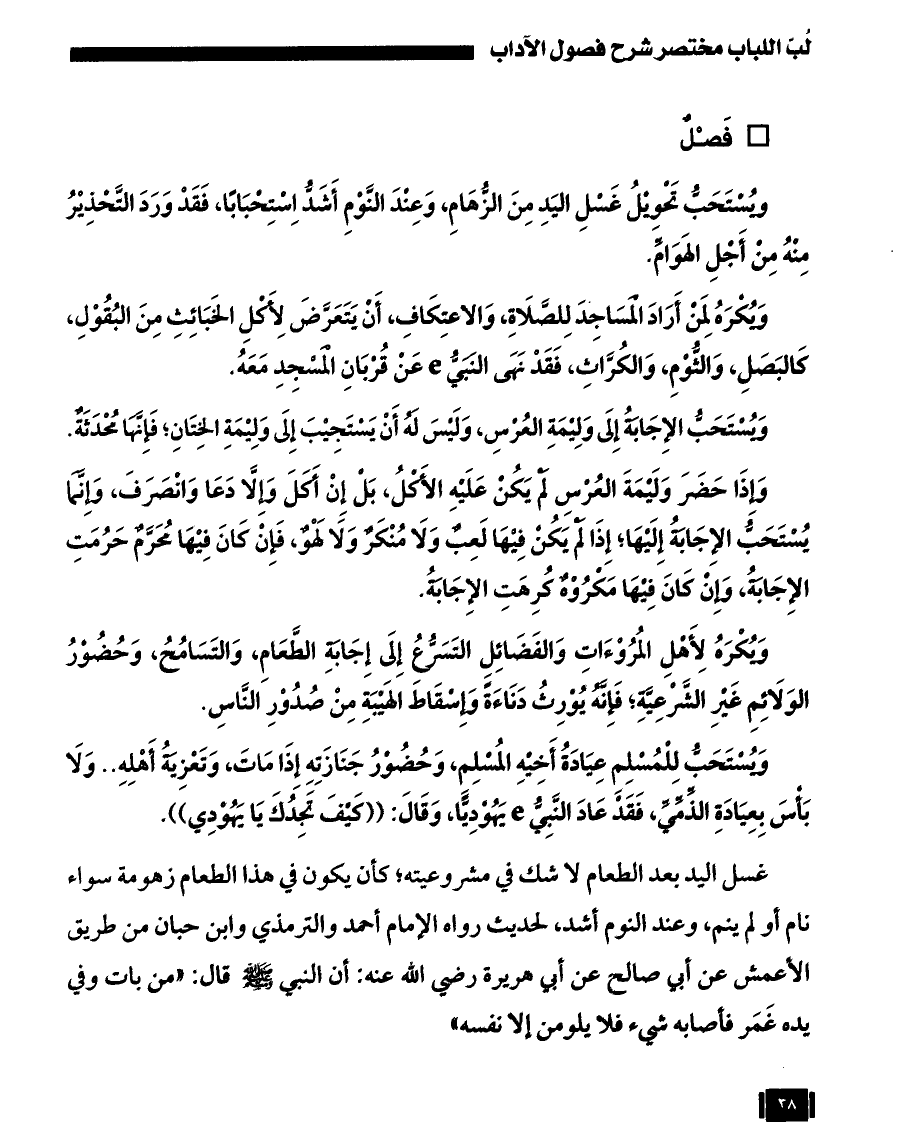 لُبّ اللباب مختصر شرح فصول الآداب
□ فَصْلٌ
ويُسْتَحَبُّ تَحْوِيْلُ غَسْلِ اليَدِ مِنَ الزُّهَامِ، وَعِنْدَ النَّوْمِ أَشَدُّ اِسْتِحْبَابًا، فَقَدْ وَرَدَ التَّحْذِيْرُ
مِنْهُ مِنْ أَجْلِ الهَوَامِّ.
وَيُكْرَهُ لِمَنْ أَرَادَ الْمَسَاجِدَ لِلصَّلَاةِ، وَالاعتِكَافِ، أَنْ يَتَعَرَّضَ لِأَكْلِ الخَبَائِثِ مِنَ البُقُوْلِ،
كَالبَصَلِ، وَالثُّوْمِ، وَالكُرَّاثِ، فَقَدْ نَهَى النَبَيُّ e عَنْ قُرْبَانِ الْمَسْجِدِ مَعَهُ.
وَيُسْتَحَبُّ الإِجَابَةُ إِلَى وَلِيْمَةِ العُرْسِ، وَلَيْسَ لَهُ أَنْ يَسْتَجِيْبَ إِلَى وَلِيْمَةِ الخِتَانِ؛ فَإِنَّهَا مُحْدَثَةٌ.
وَإِذَا حَضَرَ وَلِيْمَةَ العُرْسِ لَمْ يَكُنْ عَلَيْهِ الأَكْلُ، بَلْ إِنْ أَكَلَ وَإِلَّا دَعَا وَانْصَرَفَ، وَإِنَّمَا
يُسْتَحَبُّ الإِجَابَةُ إِلَيْهَا؛ إِذَا لَمْ يَكُنْ فِيْهَا لَعِبٌ وَلَا مُنْكَرٌ وَلَا لَهْوٌ، فَإِنْ كَانَ فِيْهَا مُحَرَّمٌ حَرُمَتِ
الإِجَابَةُ، وَإِنْ كَانَ فِيْهَا مَكْرُوْهٌ كُرِهَتِ الإِجَابَةُ.
وَيُكْرَهُ لِأَهْلِ المُرُوْءَاتِ وَالفَضَائِلِ التَسَرُّعُ إِلَى إِجَابَةِ الطَّعَامِ، وَالتَسَامُحُ، وَحُضُوْرُ
الوَلَائِمِ غَيْرِ الشَّرْعِيَّةِ؛ فَإِنَّهُ يُوْرِثُ دَنَاءَةً وَإِسْقَاطَ الهَيْبَةِ مِنْ صُدُوْرِ النَّاسِ.
وَيُسْتَحَبُّ لِلْمُسْلِمِ عِيَادَةُ أَخِيْهِ الْمُسْلِمِ، وَحُضُوْرُ جَنَازَتِهِ إِذَا مَاتَ، وَتَعْزِيَةُ أَهْلِهِ.. وَلَا
بَأْسَ بِعِيَادَةِ الذِّمِّيِّ، فَقَدْ عَادَ النَّبِيُّ e يَهُوْدِيًّا، وَقَالَ: ((كَيْفَ تَجِدُكَ يَا يَهُوْدِي)).
غسل اليد بعد الطعام لا شك في مشروعيته؛ كأن يكون في هذا الطعام زهومة سواء
نام أو لم ينم، وعند النوم أشد، لحديث رواه الإمام أحمد والترمذي وابن حبان من طريق
الأعمش عن أبي صالح عن أبي هريرة رضي الله عنه: أن النبي ﷺ قال: «من بات وفي
يده غَمَر فأصابه شيء فلا يلومن إلا نفسه»
٣٨